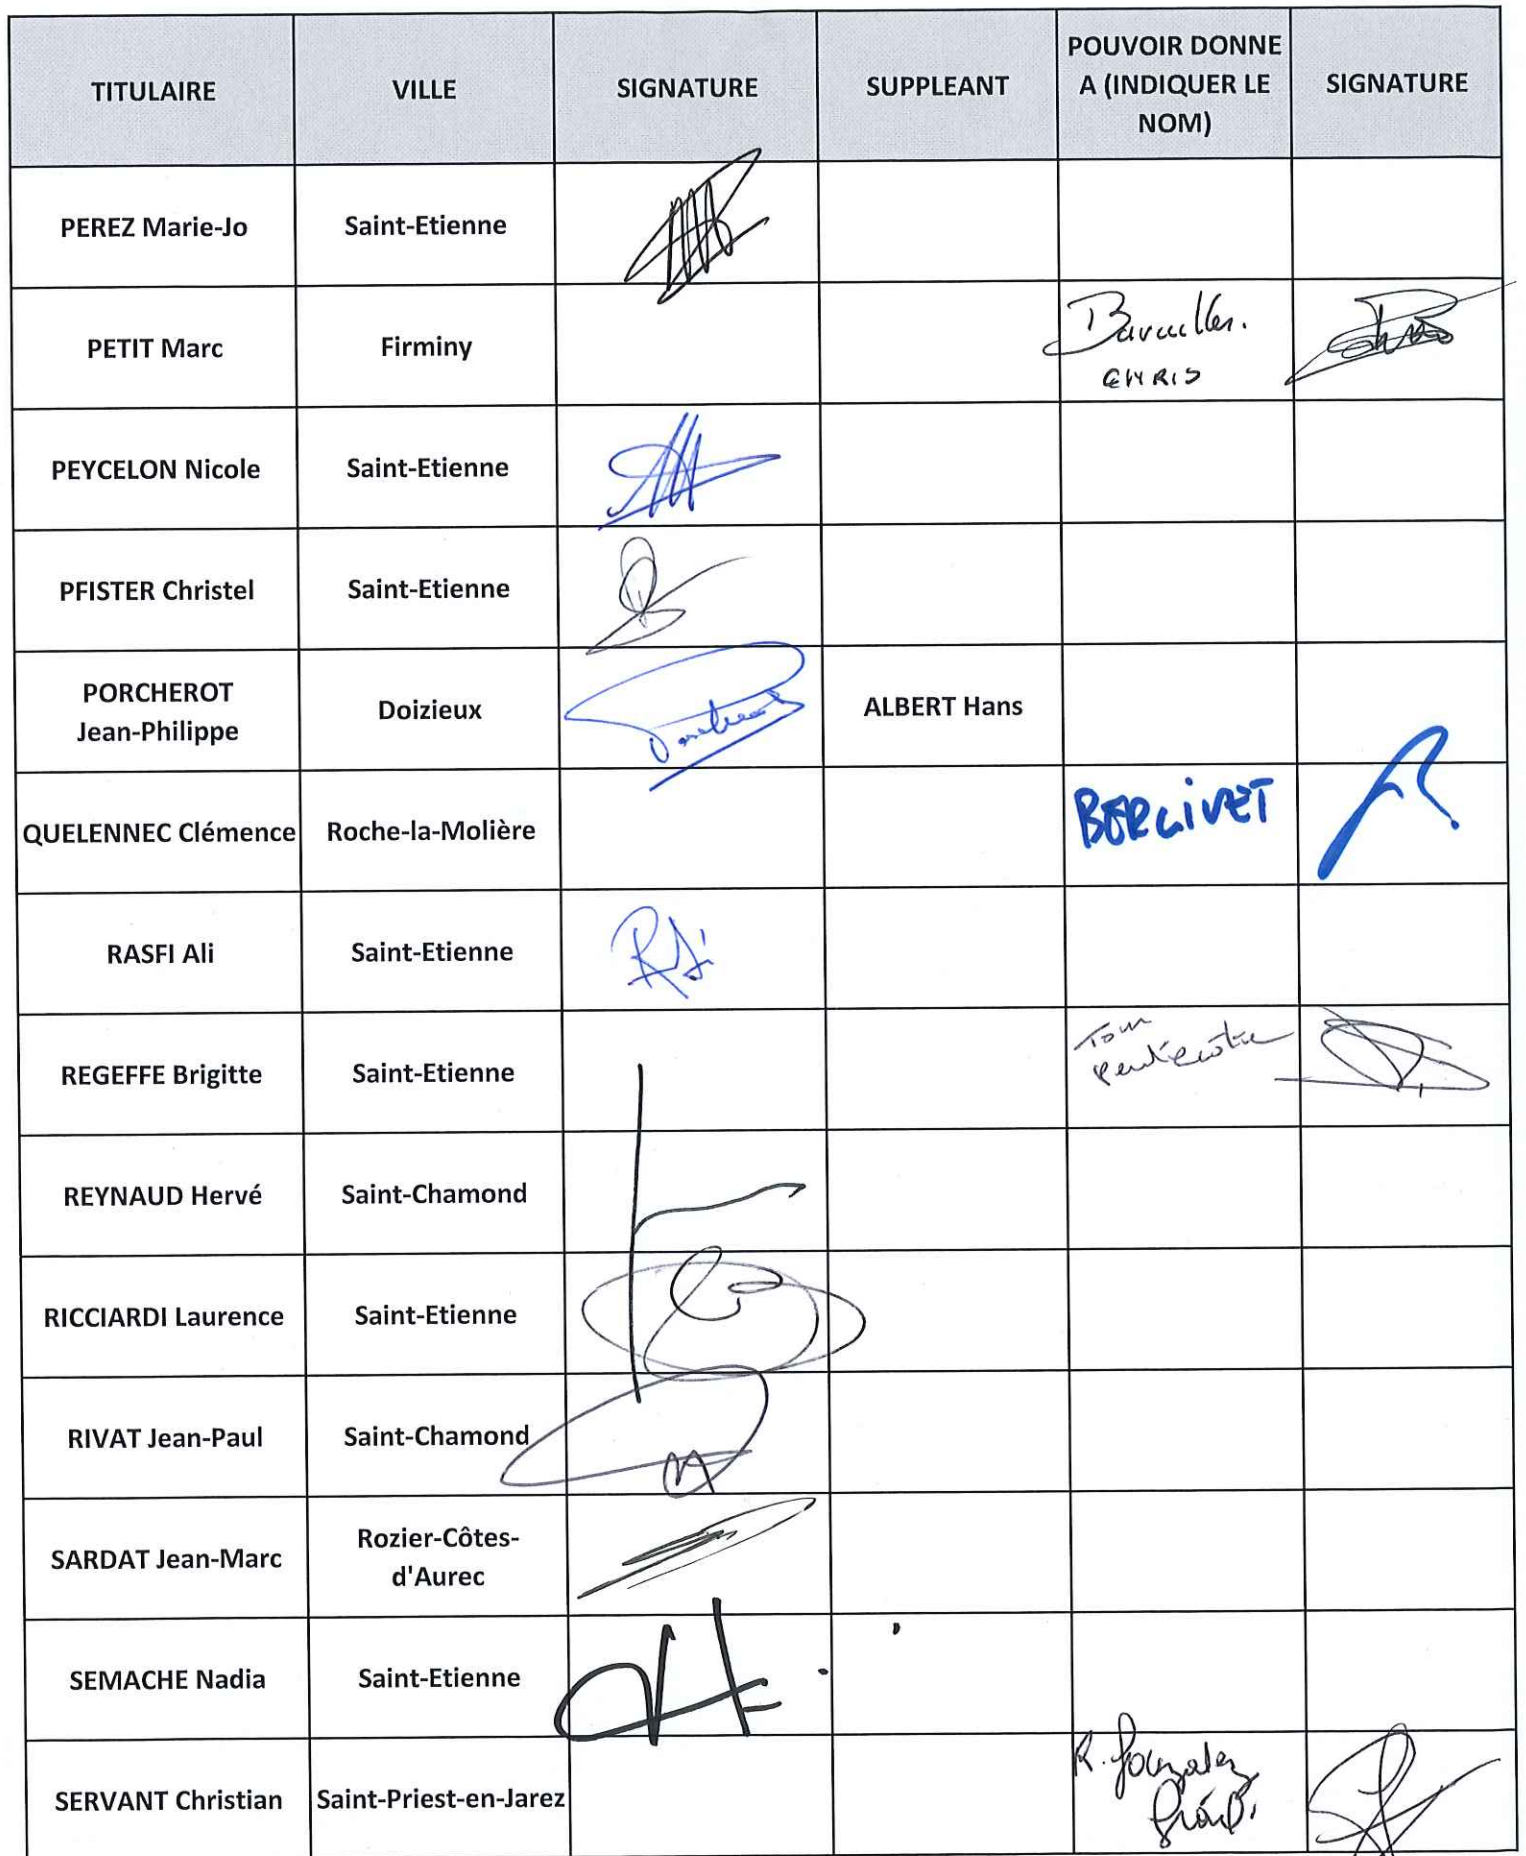 TITULAIRE
VILLE
SIGNATURE
SUPPLEANT
POUVOIR DONNE
A (INDIQUER LE
NOM)
SIGNATURE
PEREZ Marie-Jo
Saint-Etienne
PETIT Marc
Firminy
CHRIS
PEYCELON Nicole
Saint-Etienne
PFISTER Christel
Saint-Etienne
PORCHEROT
Jean-Philippe
Doizieux
ALBERT Hans
QUELENNEC Clémence
Roche-la-Molière
RASFI Ali
Saint-Etienne
REGEFFE Brigitte
Saint-Etienne
Tom
REYNAUD Hervé
Saint-Chamond
RICCIARDI Laurence
Saint-Etienne
RIVAT Jean-Paul
Saint-Chamond
SARDAT Jean-Marc
Rozier-Côtes-
d'Aurec
SEMACHE Nadia
Saint-Etienne
SERVANT Christian
Saint-Priest-en-Jarez
R. Gonzalez